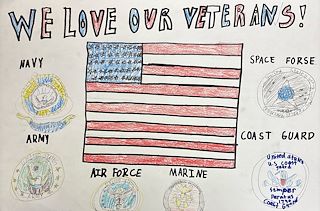 WE LOVE OUR VETERANS!
NAVY
SPACE FORSE
ARMY
COAST GUARD
AIR FORCE
MARINE
United States
U.S. coast
Guard
Semper
Paratus
1790
Coast Guard